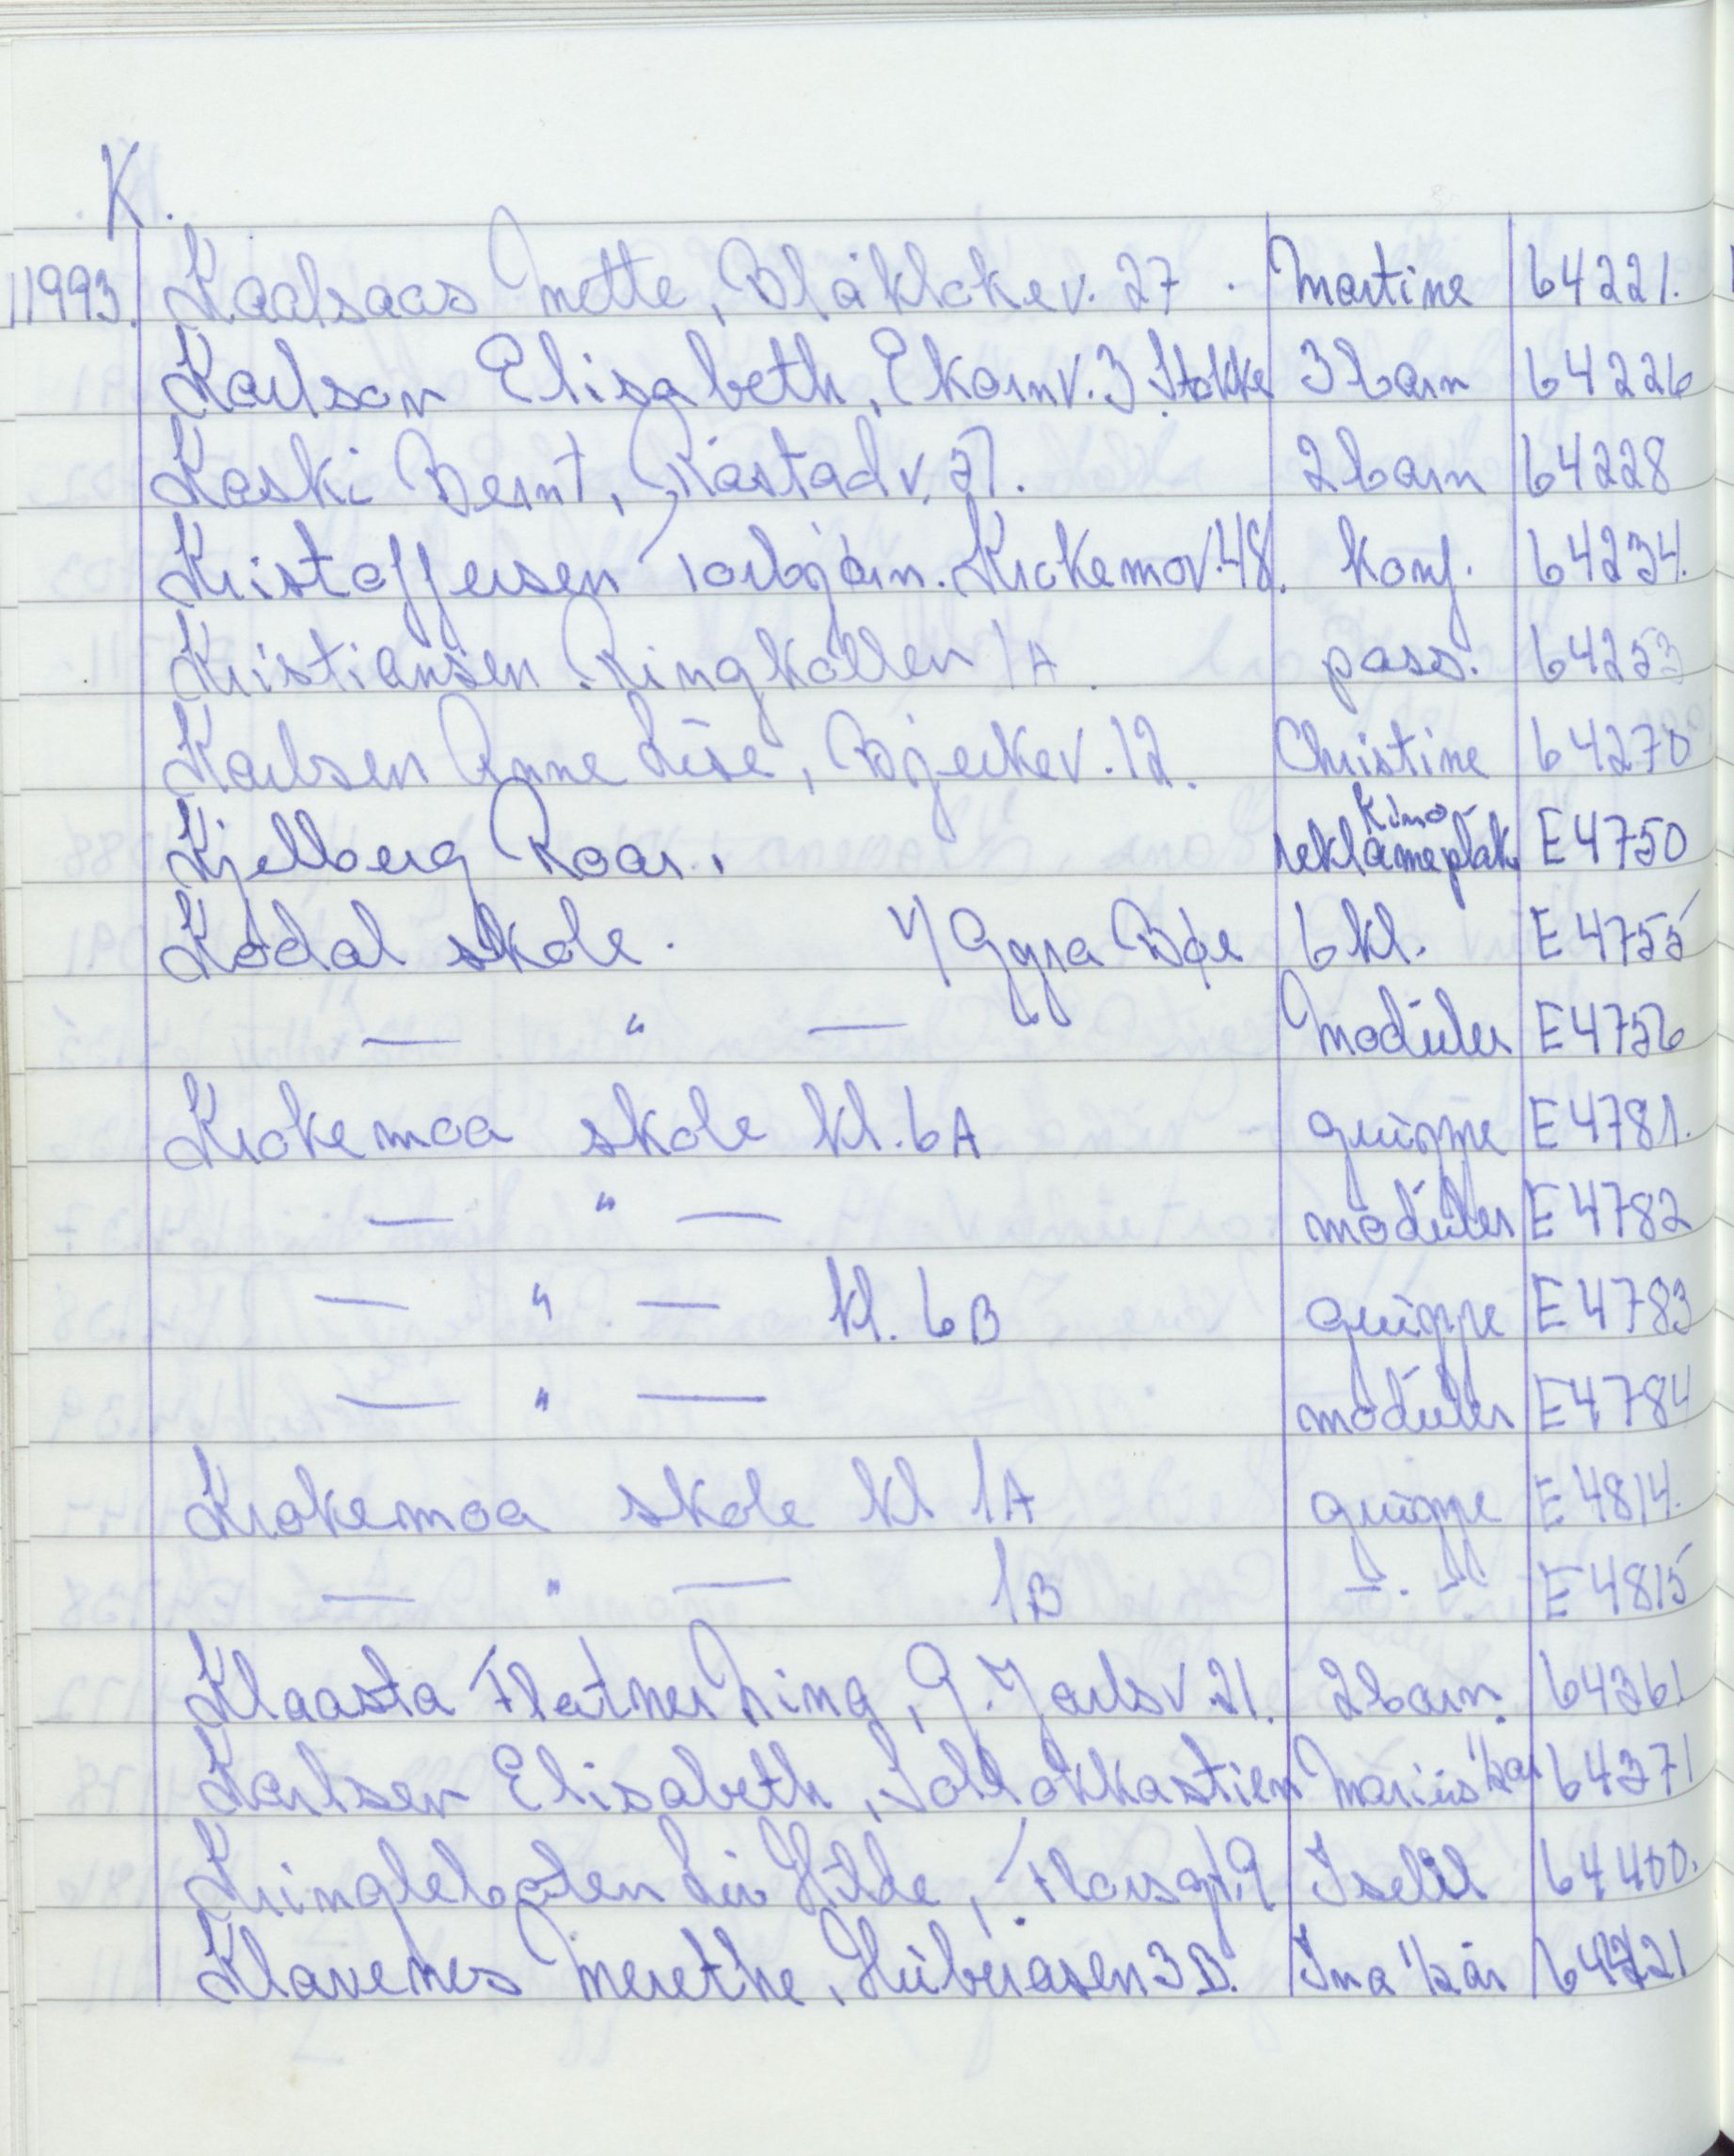 K.
1993. Kaalsaas Mette, Blåklokkev. 27. Martine 64221.
Karlson Elisabeth, Ekornv. 3 Stokke 3 barn 64226
Kaski Bernt, Råstadv. 27. 2 barn 64228
Kristoffersen Torbjørn. Krokemov. 48. konf. 64234.
Kristiansen. Ringkollen 1A. pass. 64253
Karlsen Anne Lise, Bjerkev. 12. Christine 64270
Kjellberg Roar. kino reklameplak. E4750
Kodal skole. v/ Gyra Bøe 6 kl. E4755
— " — Moduler E4756
Krokemoa skole kl. 6A gruppe E4781.
— " — moduler E4782
— " — kl. 6B gruppe E4783
— " — moduler E4784
Krokemoa skole kl 1A gruppe E4814.
— " — 1B - . - E4815
Klaasta Flatner Ning, Ø. Jarlsv 21. 2 barn. 64361
Karlsen Elisabeth, Sollokkastien Marius ½ år 64371
Kringlebotten Liv Hilde, Thorsgt. 9 Iselil 64400.
Klavenes Merethe, Huberåsen 3B. Ina ½ år 64421